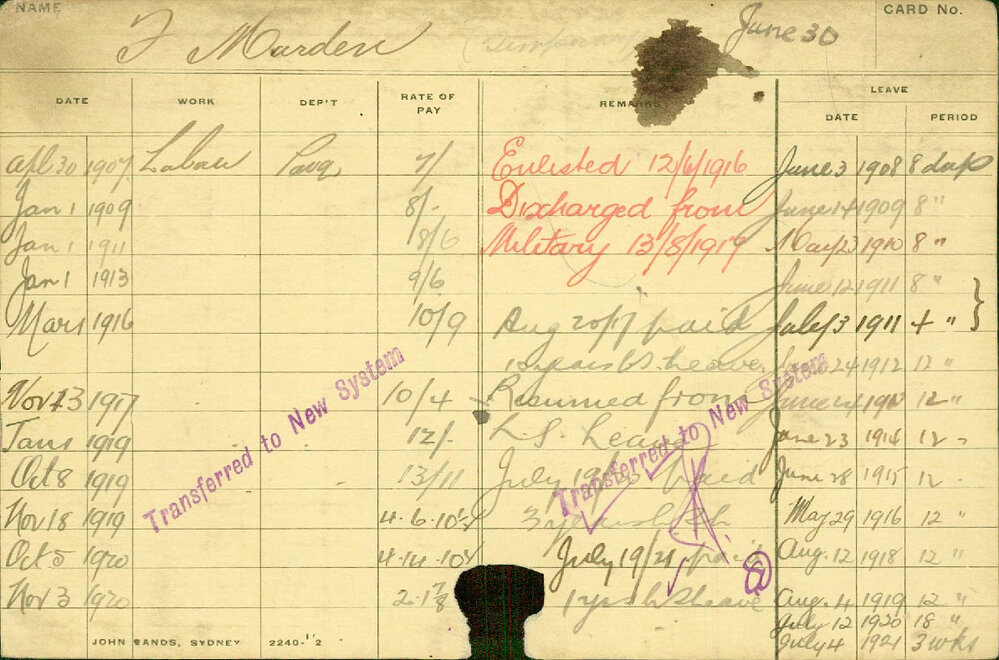 NAME
CARD No.
F Marden
(Temporary)
June 30
DATE WORK DEP'T RATE OF PAY REMARKS LEAVE
DATE PERIOD
Apl 30 1907 Labour 7/ Enlisted 12/6/1916 June 3 1908 8 days
Jan 1 1909 8/- Discharged from June 14 1909 8 "
Jan 1 1911 8/6 Military 13/8/1919 May 23 1910 8 "
Jan 1 1913 9/6 June 12 1911 8 "
Mar 1916 10/9 Aug 20/17 paid July 3 1911 4 " }
10 years L.S. Leave June 24 1912 12 "
Nov 13 1917 10/4 Resumed from June 1913 12 "
Jan 1 1919 12/- L.S. Leave June 23 1914 12 "
Oct 8 1919 13/11 July 19/20 paid June 28 1915 12 "
Nov 18 1919 4-6-10½ 3 years L.S.h May 29 1916 12 "
Oct 5 1920 4-14-10½ July 19/21 paid Aug. 12 1918 12 "
Nov 3 1920 2-1⅞ 1 yrs L.S. leave Aug. 4 1919 12 "
July 12 1920 18 "
July 4 1921 3 wks
Transferred to New System
Transferred to New System
JOHN SANDS, SYDNEY 2240-½